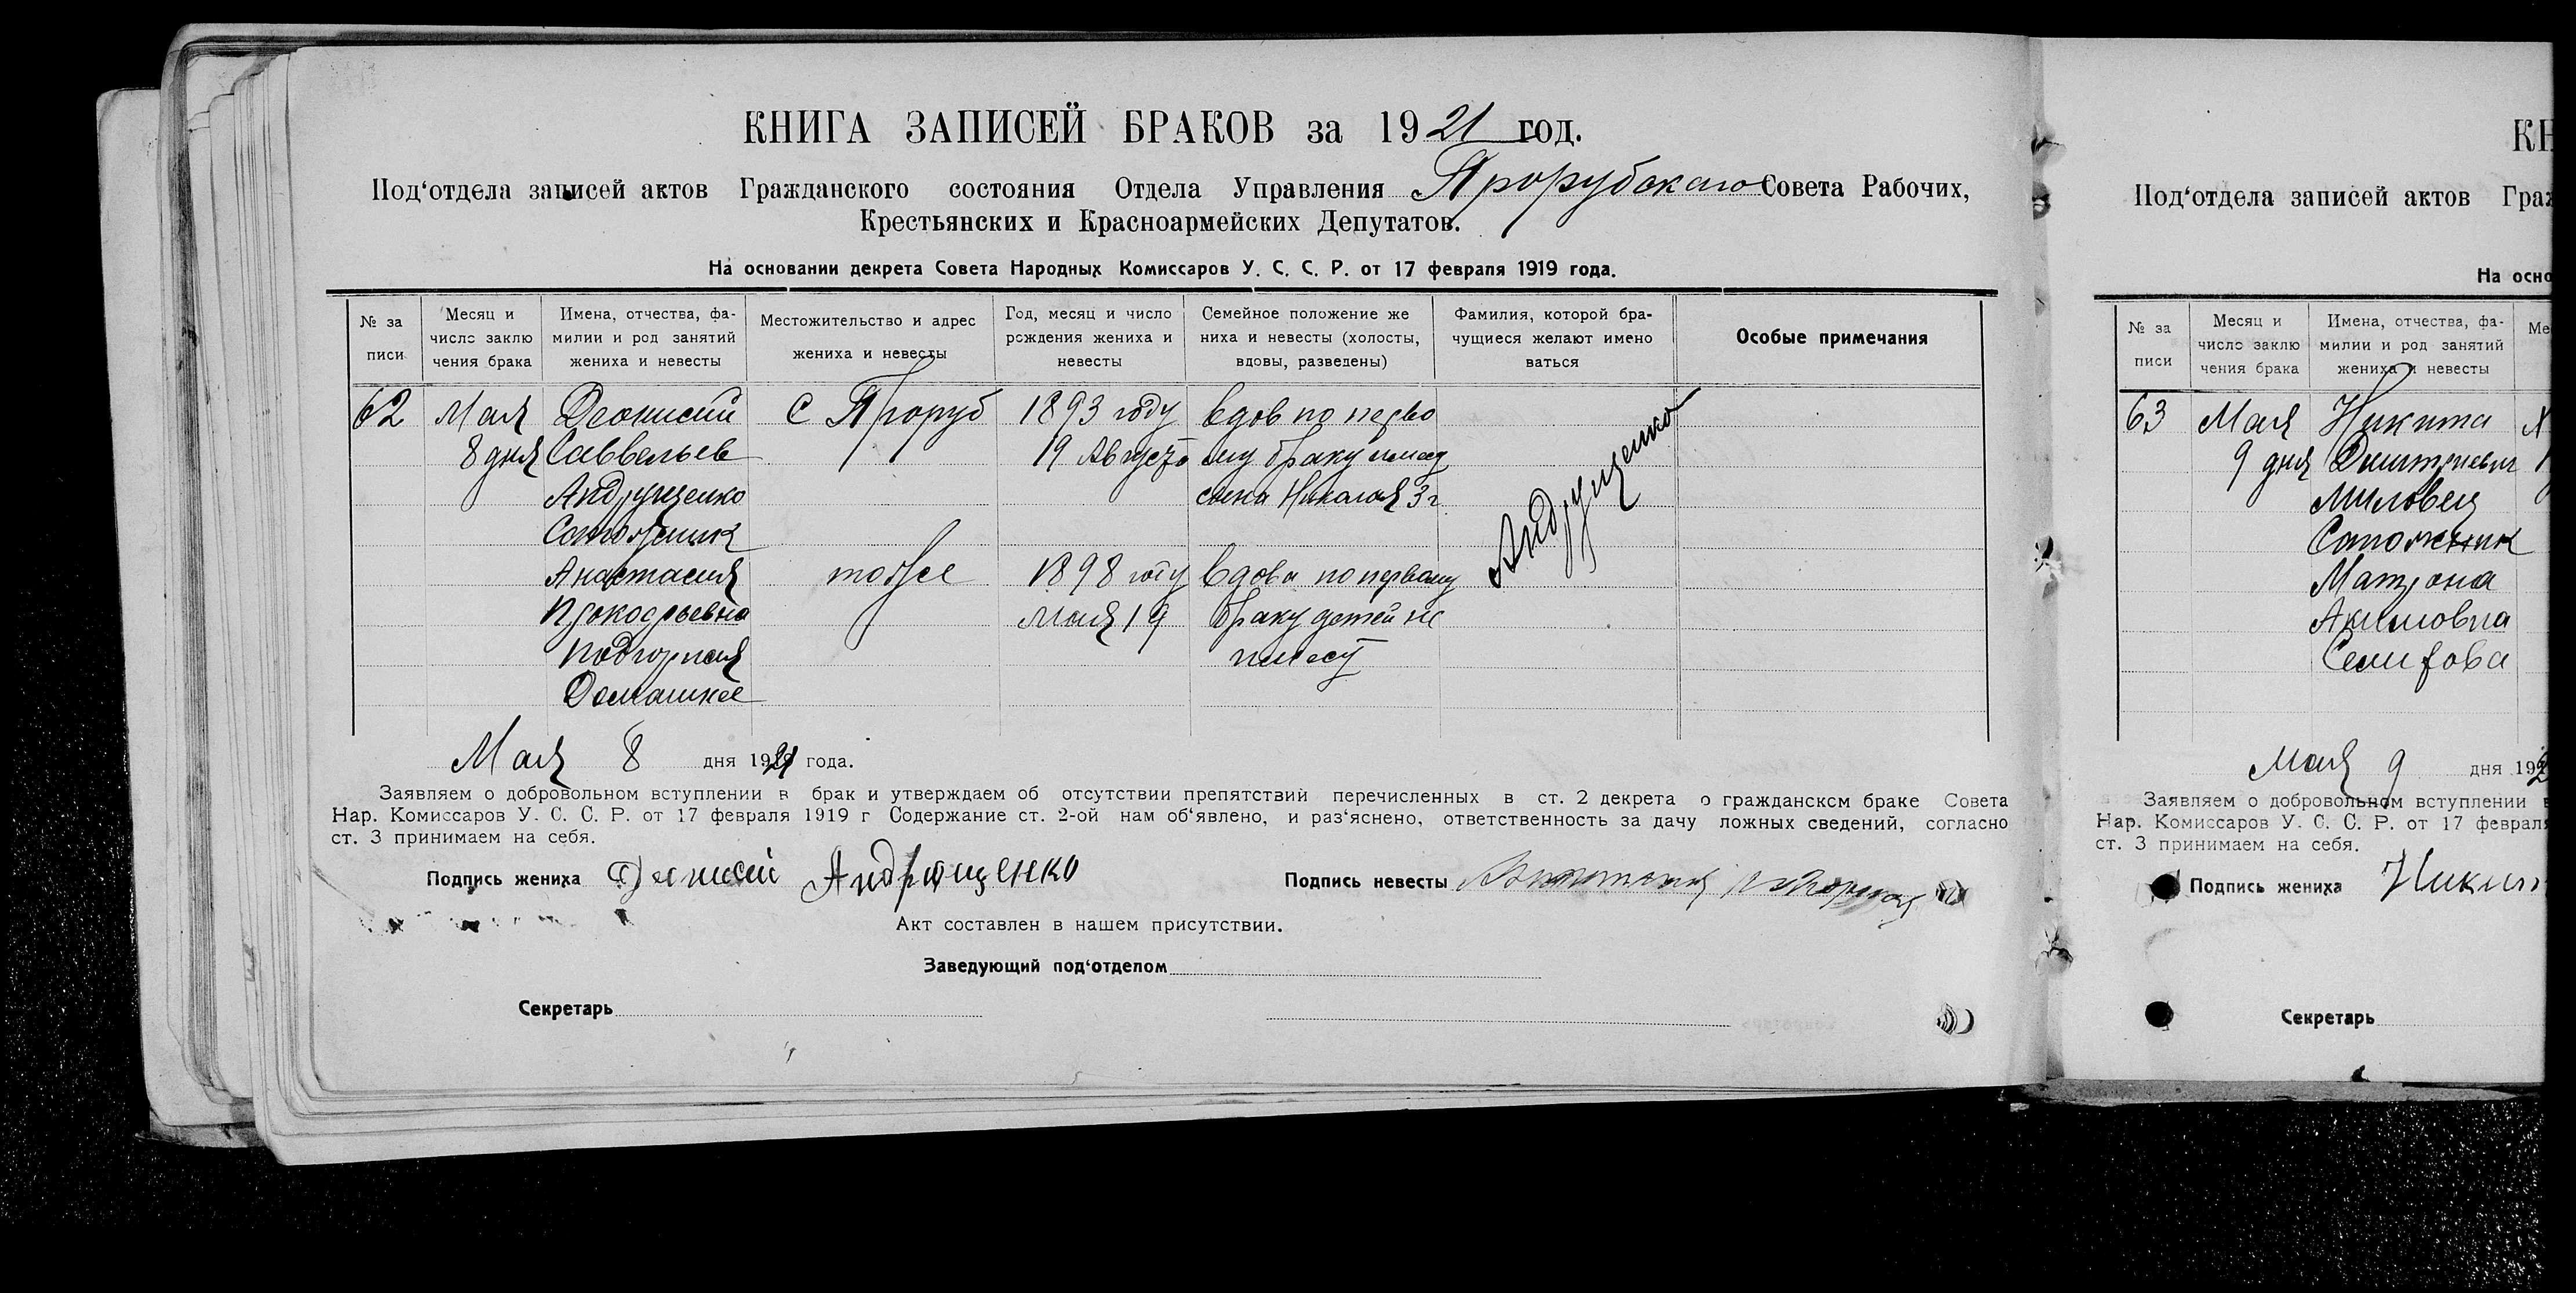 КНИГА ЗАПИСЕЙ БРАКОВ за 1921 год.
Под‘отдела записей актов Гражданского состояния Отдела Управления Прорубскаго Совета Рабочих,
Крестьянских и Красноармейских Депутатов.
На основании декрета Совета Народных Комиссаров У. С. С. Р. от 17 февраля 1919 года.
№ за писи
Месяц и число заклю чения брака
Имена, отчества, фа- милии и род занятий жениха и невесты
Местожительство и адрес жениха и невесты
Год, месяц и число рождения жениха и невесты
Семейное положение же ниха и невесты (холосты, вдовы, разведены)
Фамилия, которой бра- чущиеся желают имено ваться
Особые примечания
62 Мая Деонисий С Проруб 1893 году вдов по перво
8 дня Саввельев 19 Августо му браку имеет
Андрущенко сына Николая 3 г
Сапожник
Андрущенко
Анастасия тоже 1898 году вдова по первому
Прокофьевна Мая 19 браку детей не
Подгорная имеет
Домашнее
Мая 8 дня 1921 года.
Заявляем о добровольном вступлении в брак и утверждаем об отсутствии препятствий перечисленных в ст. 2 декрета о гражданском браке Совета
Нар. Комиссаров У. С. С. Р. от 17 февраля 1919 г Содержание ст. 2-ой нам об‘явлено, и раз‘яснено, ответственность за дачу ложных сведений, согласно
ст. 3 принимаем на себя.
Подпись жениха Деонисий Андрющенко Подпись невесты Анастасия Подгорная
Акт составлен в нашем присутствии.
Заведующий под‘отделом
Секретарь
КН
Под‘отдела записей актов Граж
На осно
№ за писи
Месяц и число заклю чения брака
Имена, отчества, фа- милии и род занятий жениха и невесты
Ме
63 Мая Никита
9 дня Дмитриевич
Миловец
Сапожник
Матрона
Акимовна
Селифова
Мая 9 дня 192
Заявляем о добровольном вступлении в
Нар. Комиссаров У. С. С. Р. от 17 февраля
ст. 3 принимаем на себя.
Подпись жениха Никит
Секретарь